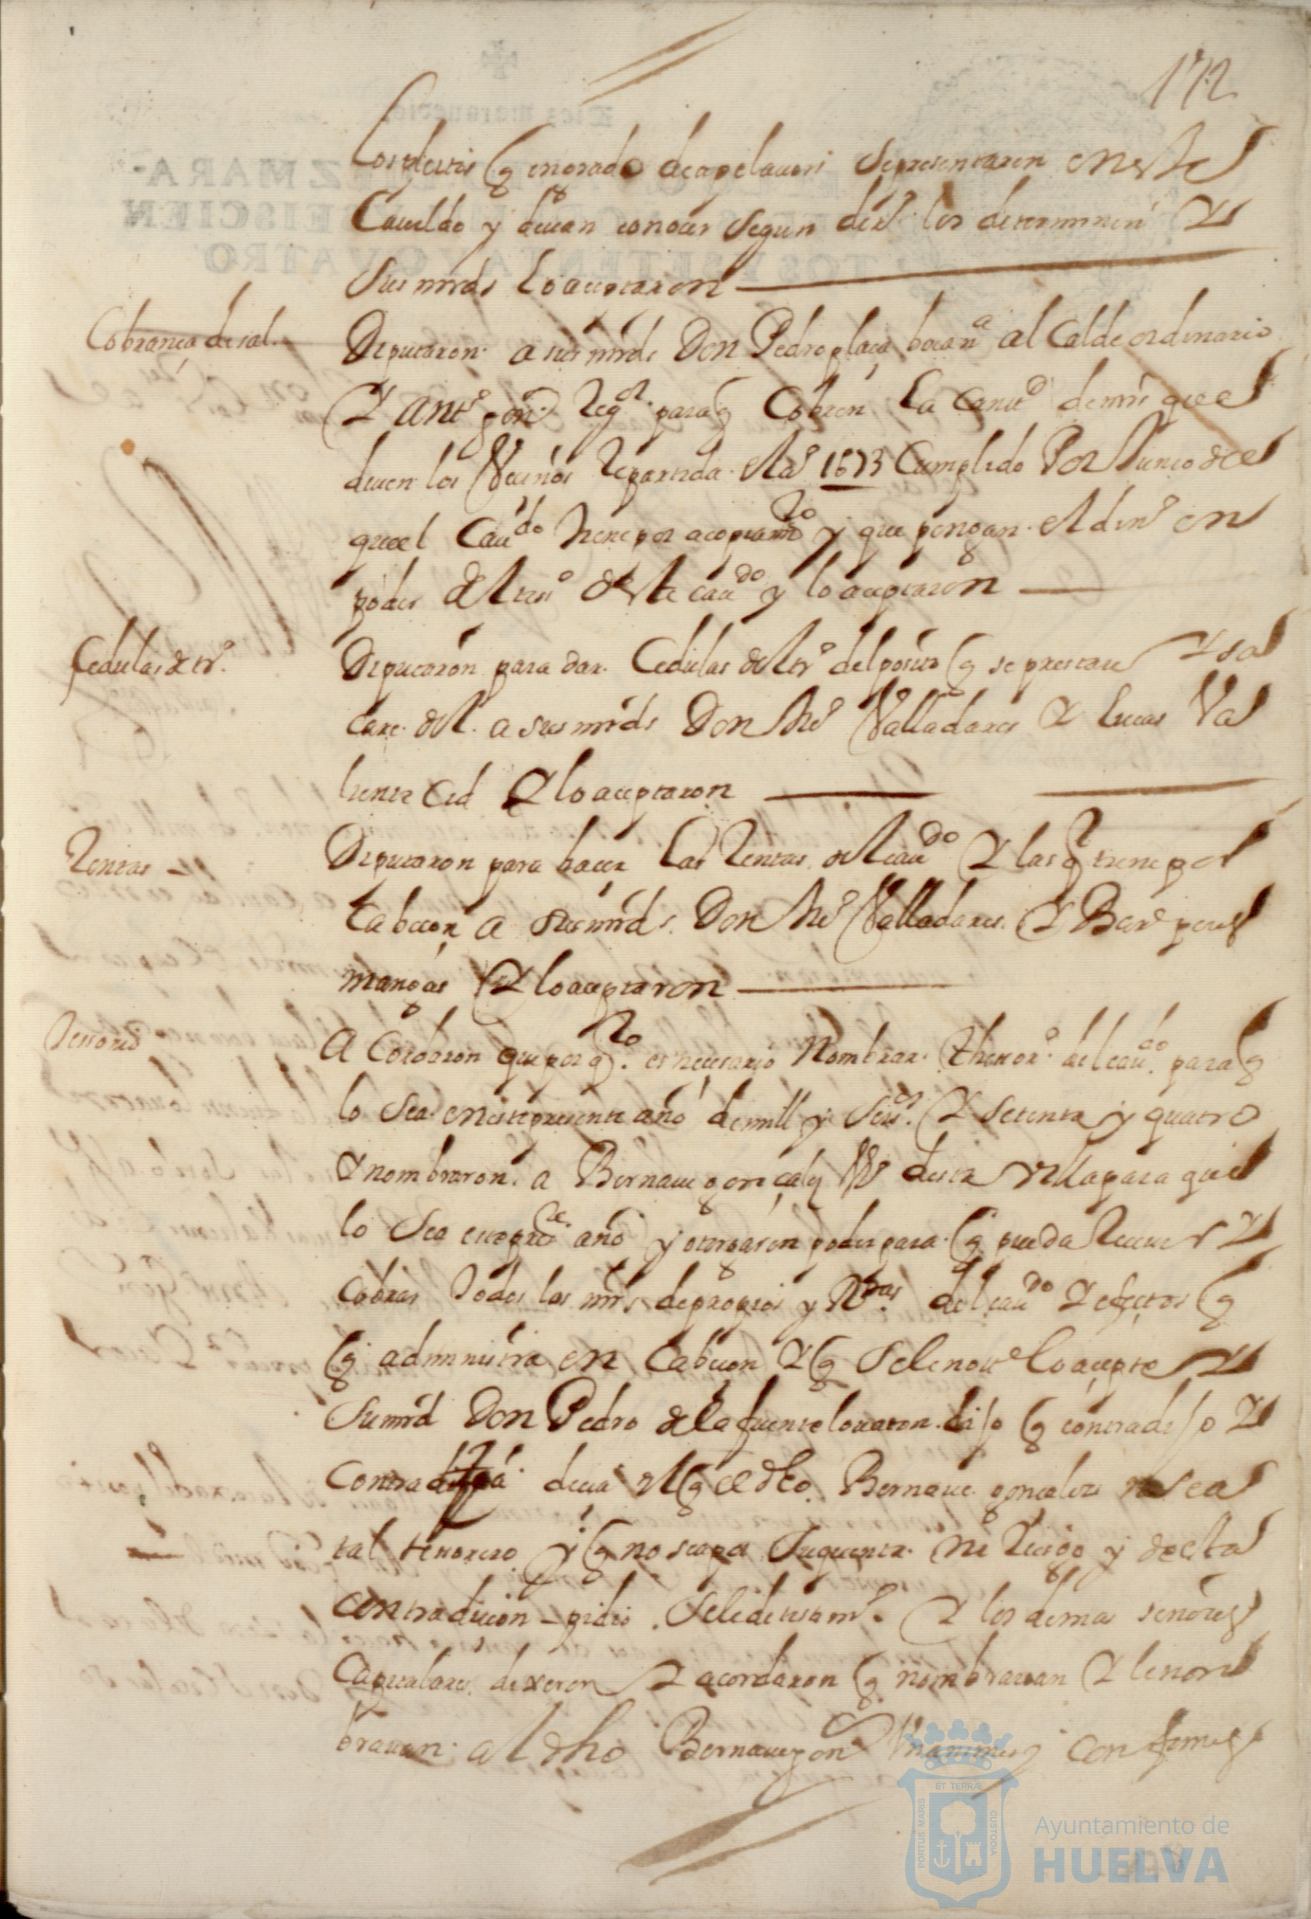 172
Los pleitos q en grado de apelacion se presentaren en este
Cauildo y deuan conocer segun dro los determinen Y
sus mrds lo aceptaron
Cobrança de sal
Diputaron a sus mrds Don Pedro plaça alcalde ordinario
Y antº gonz Regor para q Cobren la cantd de mrs que
deuen los Vecinos Repartida 1673 Cumplido Por Junio
que el Caudo tiene por acopiamto y que pongan el dinº en
poder del tesrº deste caudo y lo aceptaron
Cedulas de trº
Diputaron para dar Cedulas del trº del posito q se prestare Y sa
care del a sus mrds Don Valladares Y Lucas Va
liente Cid Y lo aceptaron
Rentas
Diputaron para hacer las Rentas del caudo Y las q tiene por
Cabeçon a sus mrds Don Valladares Y Barme perez
mangas Y lo aceptaron
Acordaron que por qto es necesario nombrar thesorº del caudo para q
lo sea en este presente año de mill y seisos Y setenta y quatro
Y nombraron a Bernaue gonçalez Vº desta villa para que
lo sea este preste año y otorgaron poder para q pueda Receuir Y
cobrar todos los mrs de propios y Rtas del caudo Y efectos q
q administra en Cabeçon Y q se le notie lo acepte Y
su mrd Don Pedro de la fuente louaton dijo q contradijo Y
contradecia el q el dho Bernaue gonçalez sea
tal tesorero y q no sea por su quenta ni Riesgo y desta
contradicion pidio se le de testimº Y los demas señores
capitulares dixeron Y acordaron q nombrauan Y nom
brauan al dho Bernaue gonz conformes
PORTUS MARIS ET TERRAE CUSTODIA
Ayuntamiento de
HUELVA